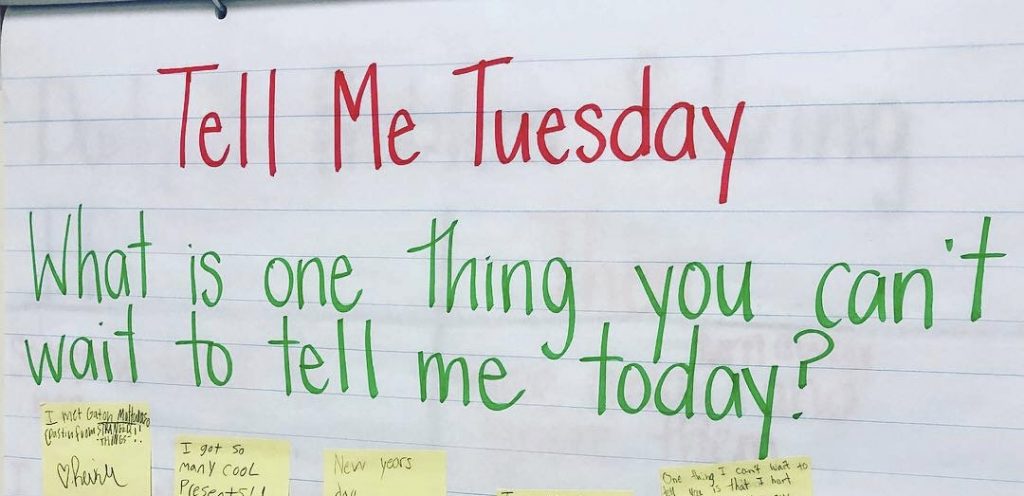 Tell Me Tuesday
What is one thing you can't
wait to tell me today?
I met Gaton
from STRANGER
THINGS!!
I got so
many cool
Presents!!
New years
day
I
One thing I can't wait to
tell you is that I hurt